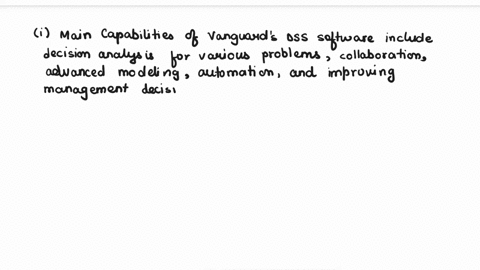 (i) Main Capabilities of Vanguard's DSS software include
decision analysis for various problems, collaboration,
advanced modeling, automation, and improving
management decisi